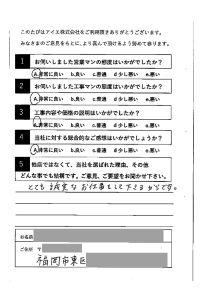 このたびはアイエ株式会社をご利用頂きありがとうございます。
みなさまのご意見をもとに、より喜んで頂けるよう努めて参ります。
1 お伺いしました営業マンの態度はいかがでしたか?
a.非常に良い b.良い c.普通 d 少し悪い e.悪い
2 お伺いしました工事マンの態度はいかがでしたか?
a.非常に良い b.良い c.普通 d 少し悪い e.悪い
3 工事内容や価格の説明はいかがでしたか?
a.非常に良い b.良い c.普通 d 少し悪い e.悪い
4 当社に対する総合的なご感想はいかがでしょうか?
a.非常に良い b.良い c.普通 d 少し悪い e.悪い
5 他店ではなくて、当社を選ばれた理由、その他
どんな事でも結構です。ご意見、ご要望をお聞かせ下さい。
とても誠実なお仕事をして下さるからです。
お名前
ご住所 〒
福岡市東区